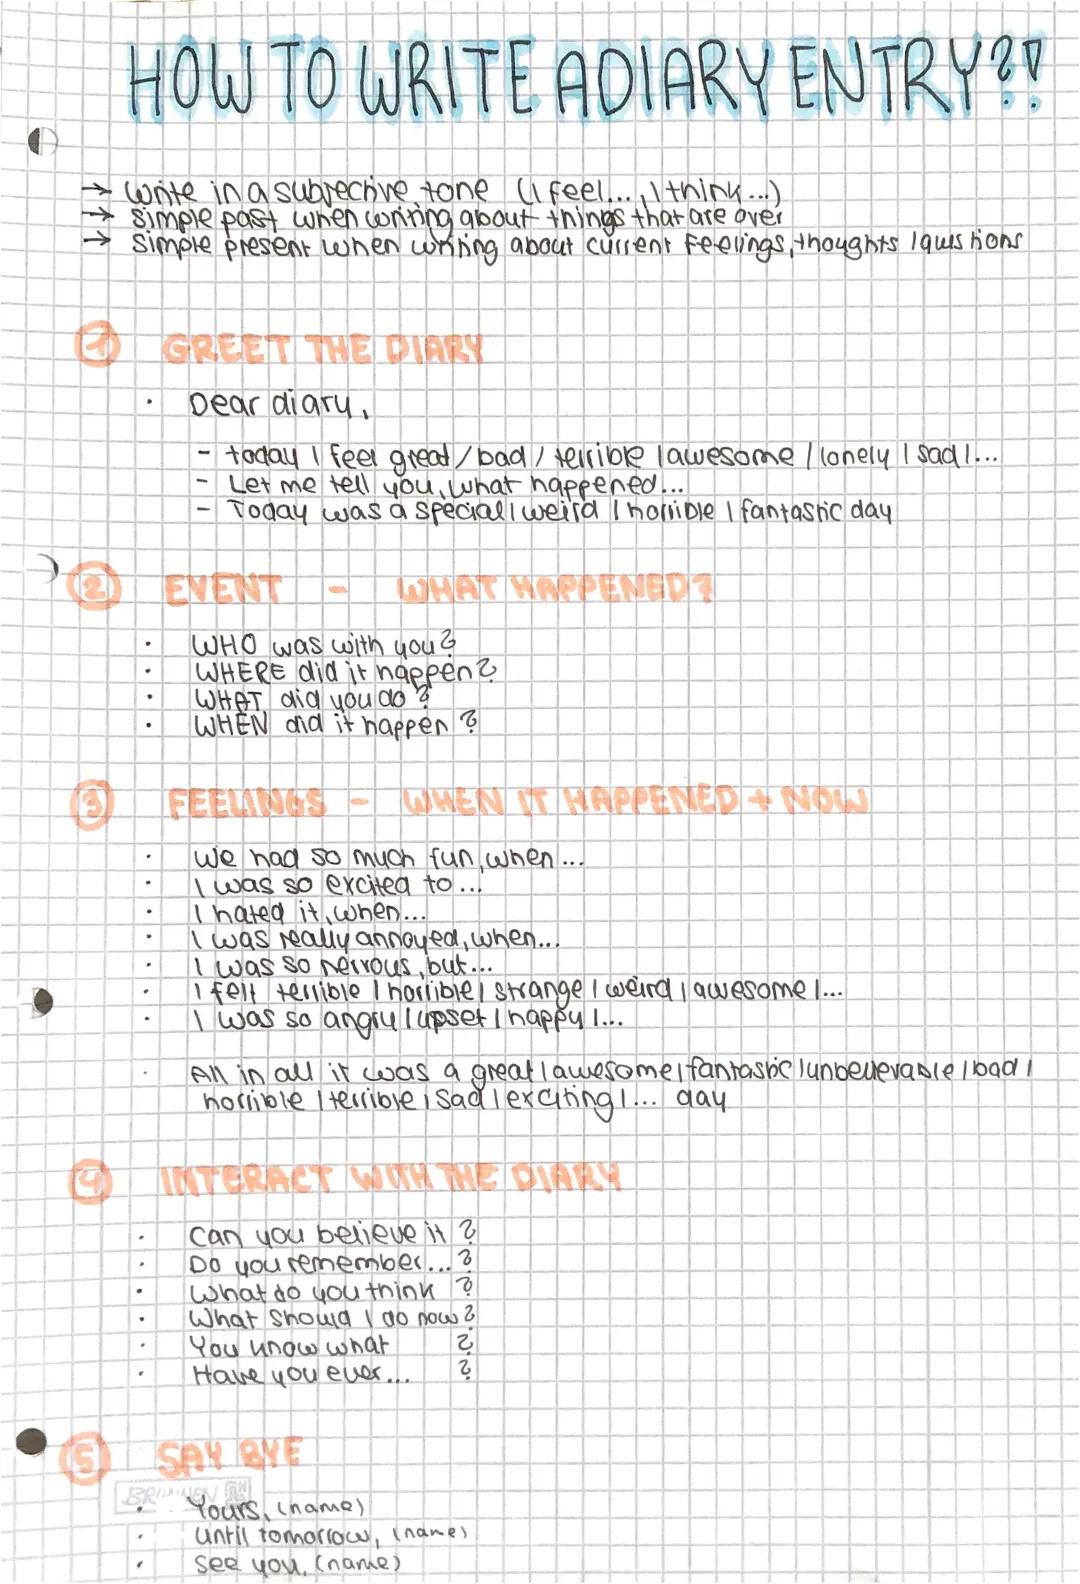 HOW TO WRITE A DIARY ENTRY??
→ write in a subjective tone (I feel..., I think...)
→ simple past when writing about things that are over
→ simple present when writing about current feelings, thoughts / questions
1 GREET THE DIARY
· Dear diary,
- today I feel great / bad / terrible / awesome / lonely / sad / ...
- Let me tell you, what happened...
- Today was a special / weird / horrible / fantastic day
2 EVENT - WHAT HAPPENED?
· WHO was with you?
· WHERE did it happen?
· WHAT did you do?
· WHEN did it happen?
3 FEELINGS - WHEN IT HAPPENED + NOW
· We had so much fun, when ...
· I was so excited to ...
· I hated it, when...
· I was really annoyed, when...
· I was so nervous, but...
· I felt terrible / horrible / strange / weird / awesome / ...
· I was so angry / upset / happy / ...
· All in all it was a great / awesome / fantastic / unbelievable / bad /
horrible / terrible / sad / exciting / ... day
4 INTERACT WITH THE DIARY
· Can you believe it ?
· Do you remember... ?
· What do you think ?
· What should I do now ?
· You know what ?
· Have you ever... ?
5 SAY BYE
· Yours, (name)
· Until tomorrow, (name)
· See you, (name)